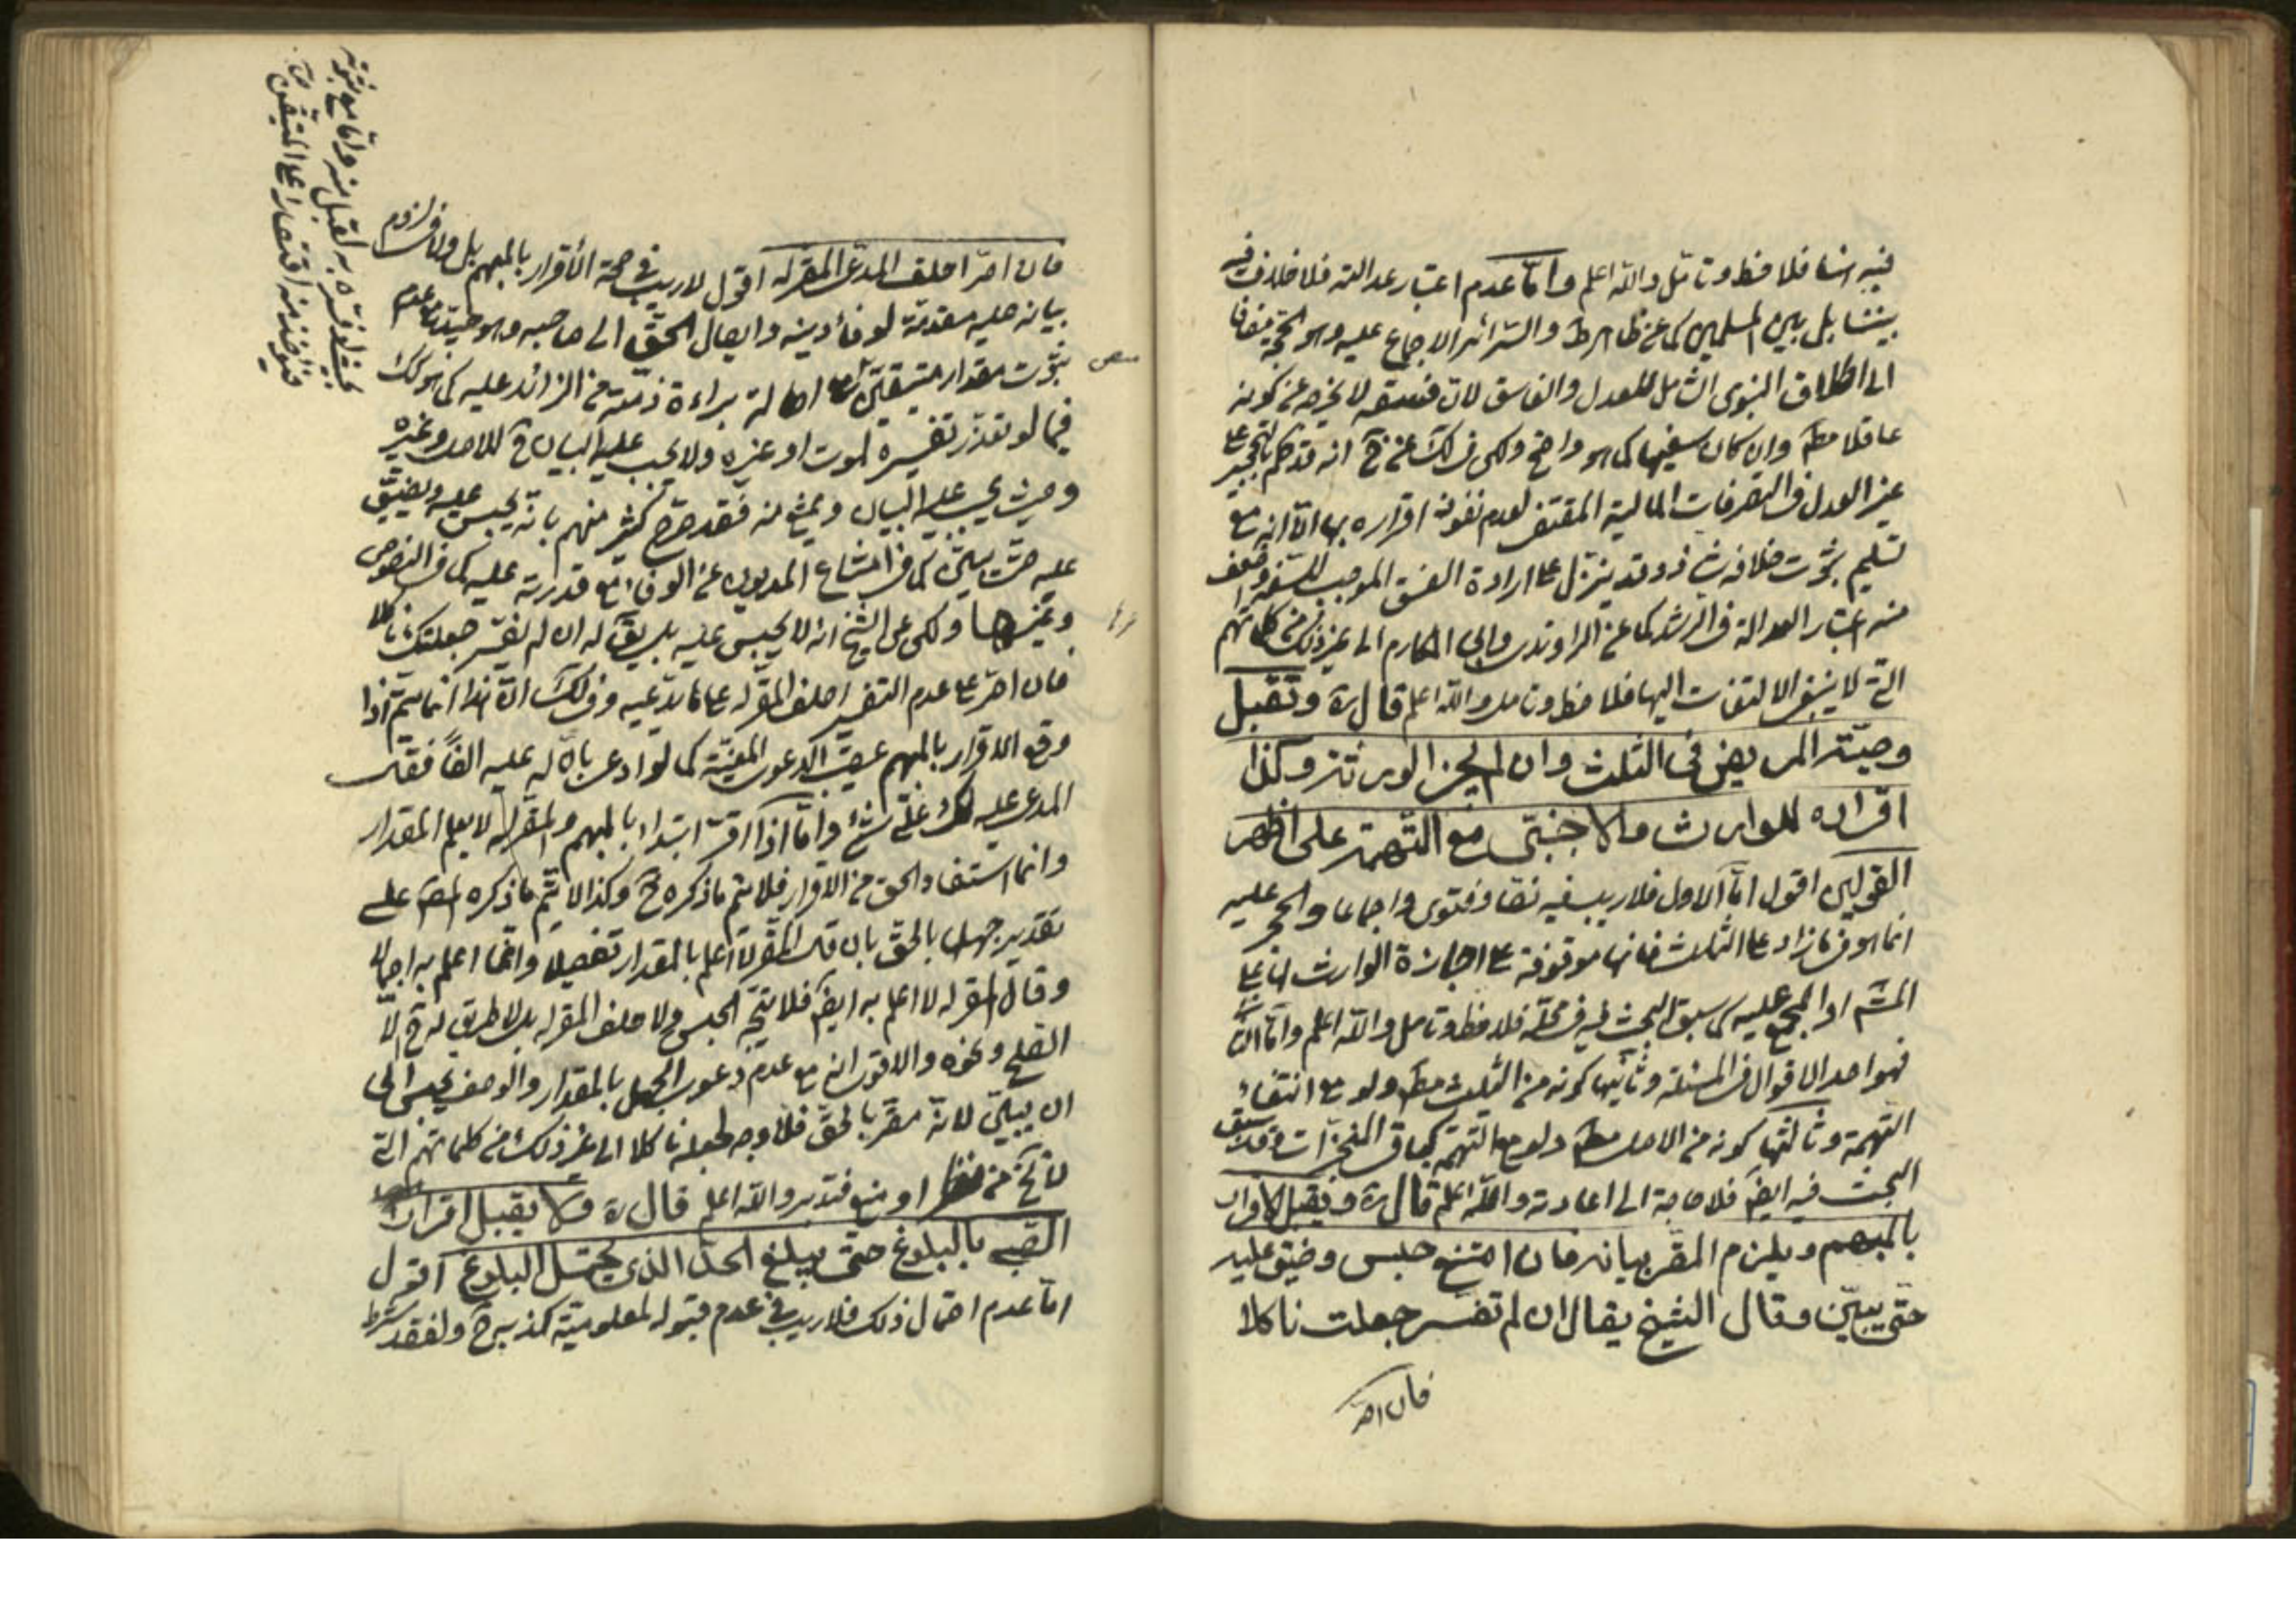 فيه انسا فلاحظ وتامّل واللّه اعلم وامّا عدم اعتبار عدالته فلا خلاف فيه
بيننا بل بين المسلمين كما عن ظاهر ط والسرائر الاجماع عليه وهو الحجّة مضافا
الى اطلاق النبوى الشامل للعدل والفاسق لان فسقه لا يخرجه عن كونه
عاقلا مط وان كان سفيها كما هو واضح ولكن فى لك عن انه قد حكم بالتحجير على
غير العدل فى التصرفات المالية المقتضى لعدم نفوذ اقراره بها الّا انه مع
تسليم ثبوت خلافه شاذ وقد ينزل على ارادة الفسق الموجب للسفه وضعف
منه اعتبار العدالة فى الرشد كما عن الراوندى وابى المكارم الى غير ذلك من كلماتهم
التى لا ينبغى الالتفات اليها فلاحظ وتامل واللّه اعلم قال ره وتقبل
وصيّة المريض فى الثلث وان لم يجز الورثة وكذا
اقراره للوارث والاجنبى مع التهمة على اظهر
القولين اقول امّا الاول فلا ريب فيه نصّا وفتوى واجماعا والحجر عليه
انما هو فى ما زاد على الثلث فانها موقوفة على اجازة الوارث على
او المجمع عليه كما سبق البحث فيه فى محلّه فلاحظ وتامل واللّه اعلم وامّا
فهو احد الاقوال فى المسئلة وثانيها كونه من الثلث مط ولو مع انتفاء
التهمة وثالثها كونه من الاصل مط ولو مع التهمة كما فى المنجزات وقد سبق
البحث فيه ايضا فلا حاجة الى اعادته واللّه اعلم قال ره ويقبل الاقرار
بالمبهم ويلزم المقر بيانه فان امتنع حبس وضيق عليه
حتى يبيّن وقال الشيخ يقال ان لم تفسر جعلت ناكلا
فان اصرّ
فان اصرّ احلف المدعى المقر له اقول لا ريب فى صحة الاقرار بالمبهم بل ولا فى لزوم
بيانه عليه مقدمة لوفاء دينه وايصال الحقّ الى صاحبه وهو حينئذ مع عدم
ثبوت مقدار متيقن اصالة براءة ذمته من الزائد عليه كما هو كك
فيما لو تعذّر تفسيره لموت او غيره ولا يجب عليه البيان ح للاصل وغيره
وحيث يجب عليه البيان ويمتنع منه فقد صرّح كثير منهم بانّه يحبس عليه ويضيّق
عليه حتى يبيّن كما فى امتناع المديون عن الوفاء مع قدرته عليه كما فى النصوص
وغيرها ولكن عن الشيخ انه لا يحبس عليه بل يق له ان لم تفسّر جعلتك ناكلا
فان اصرّ على عدم التفسير احلف المقر له على ما يدّعيه وفى لك انّ هذا انما يتم اذا
وقع الاقرار بالمبهم عقيب الدعوى المعيّنة كما لو ادعى بانّ له عليه الفا فقال
المدعى عليه لك علىّ شئ وامّا اذا اقرّ ابتداء بالمبهم والمقر له لا يعلم المقدار
وانما استفاد الحق من الاقرار فلا يتم ما ذكره ح وكذا لا يتّم ما ذكره المص على
تقدير جهله بالحقّ بان قال المقر لا اعلم بالمقدار تفصيلا وانّما اعلم به اجمالا
وقال المقر له لا اعلم به ايضا فلا يتجه الحبس ولا حلف المقر له بل لا طريق له ح الّا
الصلح ونحوه والاقوى انه مع عدم دعوى الجهل بالمقدار والوصف يحبس الى
ان يبيّن لانّه مقر بالحقّ فلا وجه لجعله ناكلا الى غير ذلك من كلماتهم التى
لا تخ من او منع فتدبر واللّه اعلم قال ره ولا يقبل اقرار
الصبى بالبلوغ حتى يبلغ الحدّ الذى يحتمل البلوغ اقول
امّا عدم احتمال ذلك فلا ريب فى عدم قبوله لمعلومية كذبه ح ولفقد شرط